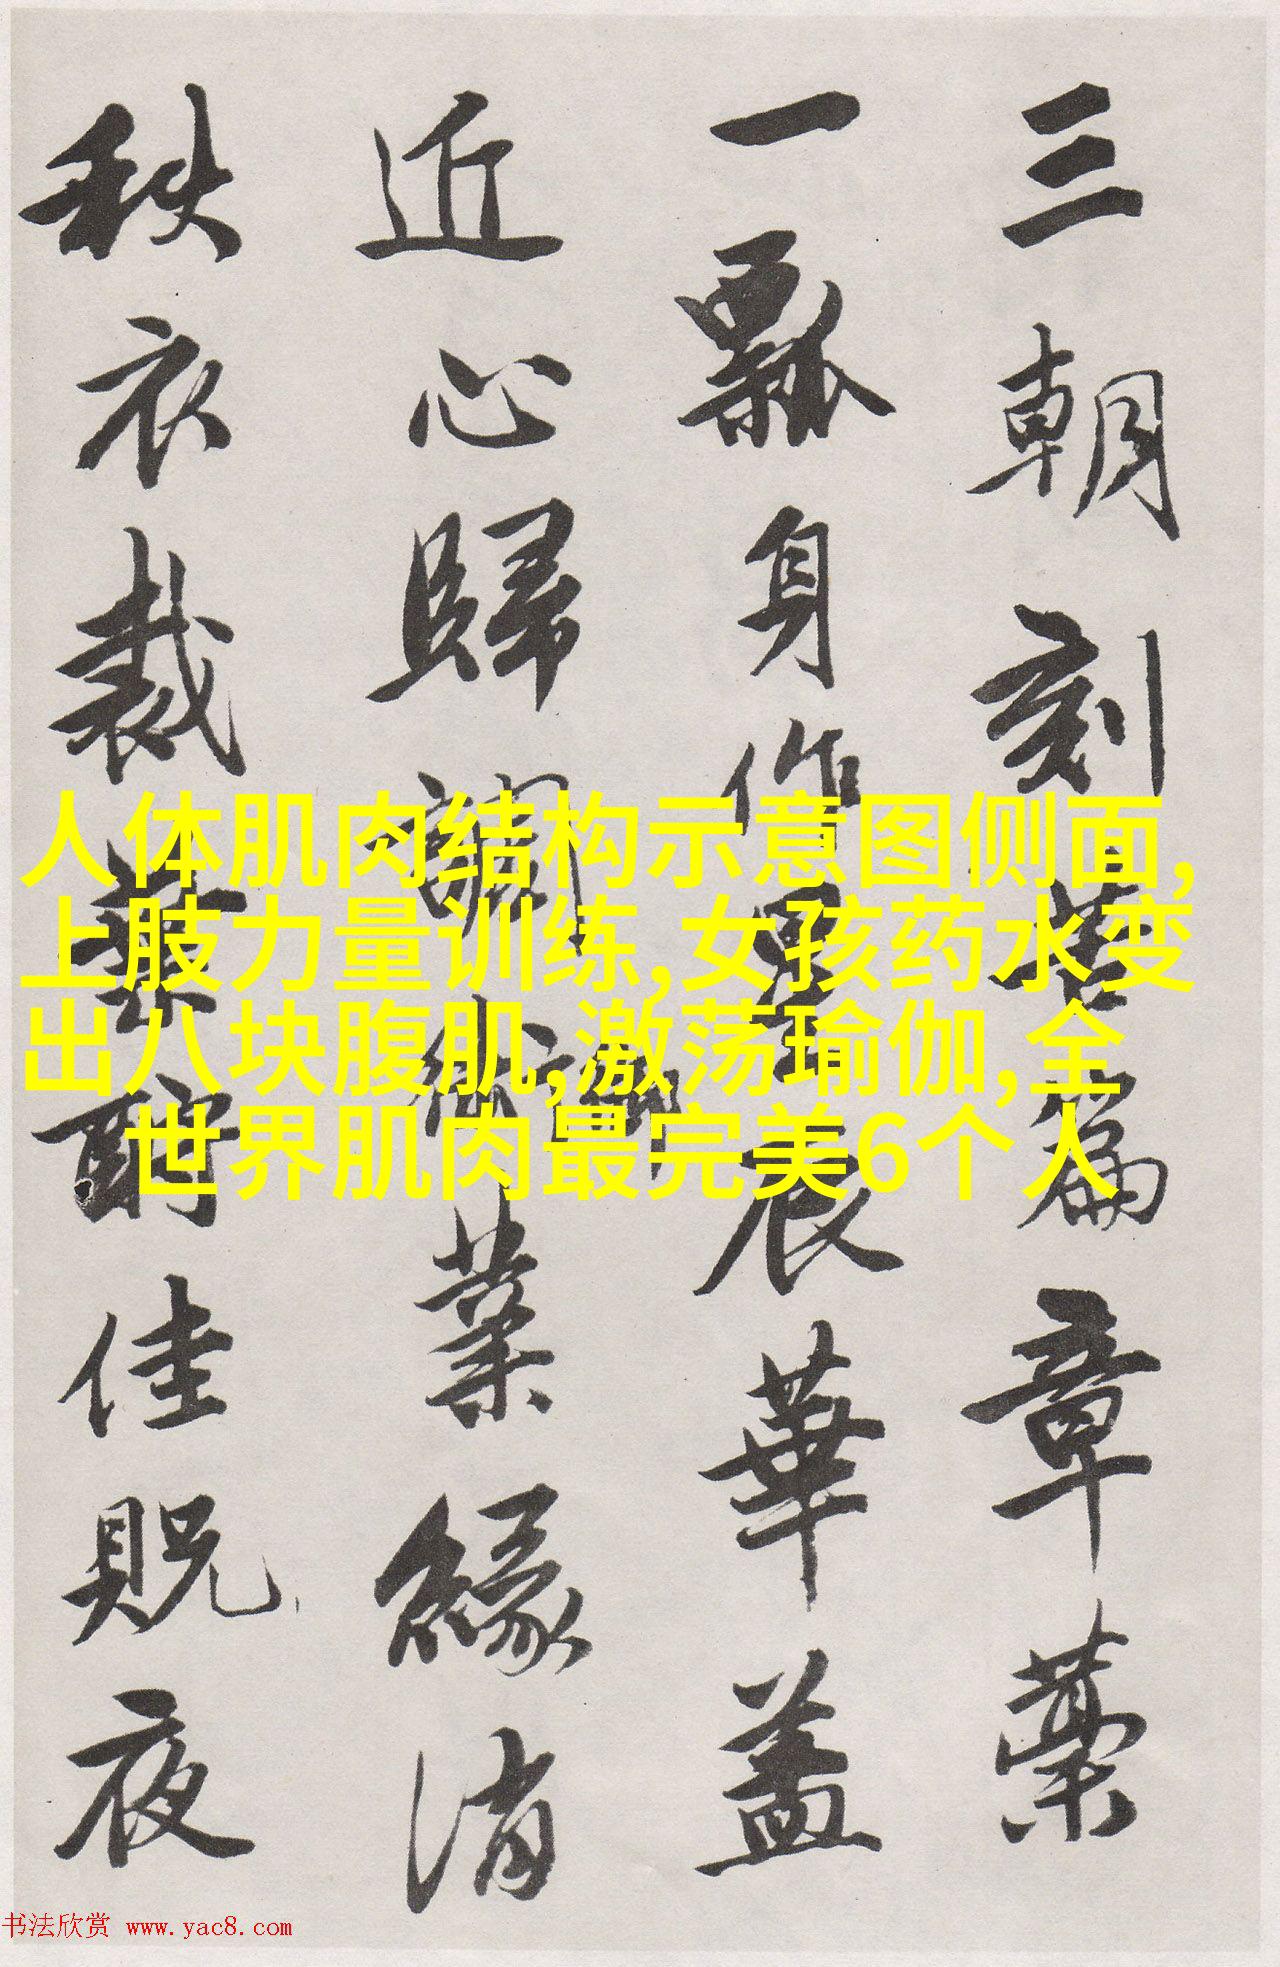 三朝刻苦篇章藁
一瓢身作星辰華蓋
近心歸讕術藝業緣消
秋衣裁製酧佳貺夜
人体肌肉结构示意图侧面,
上肢力量训练,女孩药水变
出八块腹肌,激荡瑜伽,全
世界肌肉最完美6个人
书法欣赏 www.yac8.com